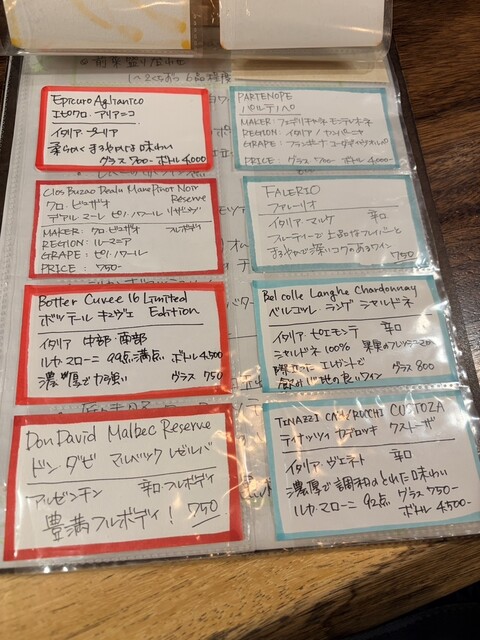 Epicuro Aglianico
エピクロ アリアニコ
イタリア プーリア
柔らかくまろやかな味わい
グラス 700- ボトル 4,000
Clos Buzao Dealu Mare Pinot Noir
Reserve
クロ・ビュザオ
デアル マーレ ピノ・ノワール リザーブ
MAKER: クロ・ビュザオ フルボディ
REGION: ルーマニア
GRAPE: ピノ・ノワール
PRICE: 750-
Botter Cuvee 16 Limited
Edition
ボッテール キュヴェ
イタリア 中部・南部
ルカ・マローニ 99点満点 ボトル 4,500
濃厚で力強い グラス 750
Don David Malbec Reserve
ドン ダビ マルベック レゼルバ
アルゼンチン 辛口・フルボディ
豊満フルボディ! 750
PARTENOPE
パルテノペ
MAKER:
REGION: イタリア / カンパーニャ
GRAPE:
PRICE: グラス 700- ボトル 4,000
FALERIO
ファレーリオ
イタリア・マルケ 辛口
フルーティーで上品なフレイバーと
まろやかで深いコクのあるワイン
750
Bel colle Langhe Chardonnay
ベルコッレ ランゲ シャルドネ
イタリア ピエモンテ 辛口
シャルドネ 100% 果実の
際立つ エレガントで
飲み心地の良いワイン グラス 800
TENAZZI CUSTOZA
クストーザ
イタリア・ヴェネト 辛口
濃厚で調和のとれた味わい
ルカ・マローニ 92点 グラス 750-
ボトル 4,500-